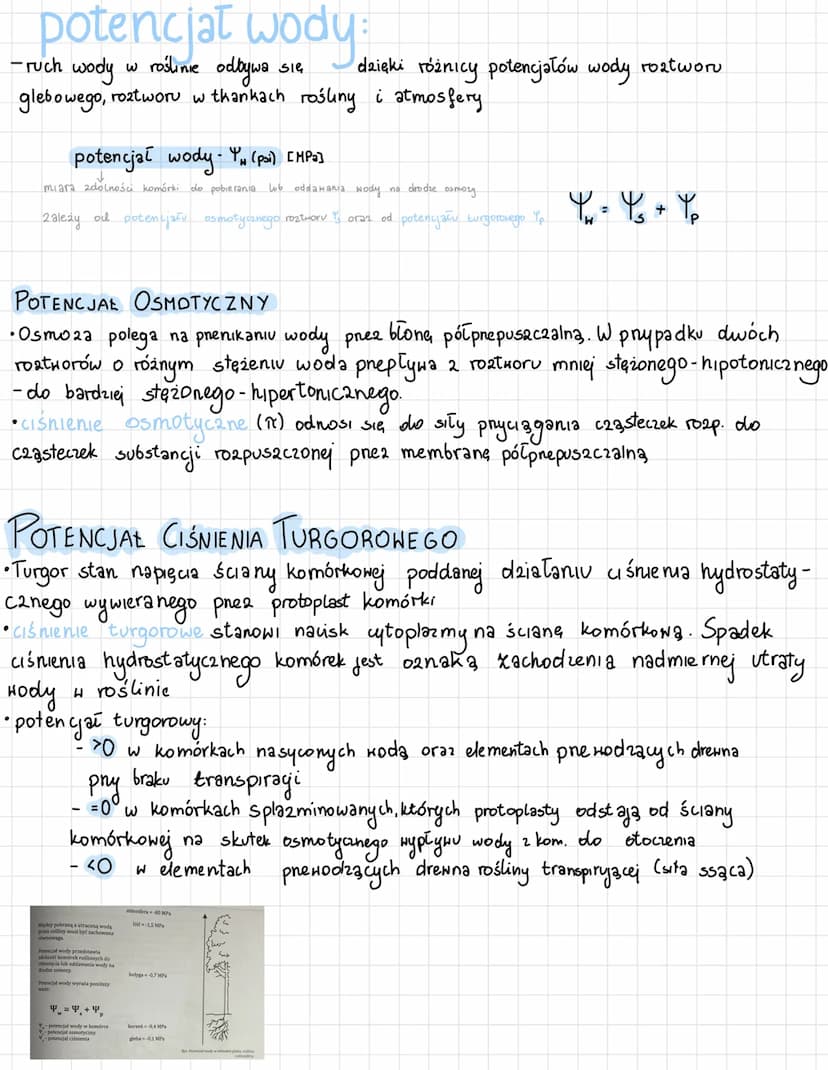 potencjał wody:
- ruch wody w roślinie odbywa się dzięki różnicy potencjałów wody roztworu
glebowego, roztworu w tkankach rośliny i atmosfery
potencjał wody - Ψw (psi) [MPa]
miara zdolności komórki do pobierania lub oddawania wody na drodze osmozy
zależy od potencjału osmotycznego roztworu Ψs oraz od potencjału turgorowego Ψp
Ψw = Ψs + Ψp
POTENCJAŁ OSMOTYCZNY
• Osmoza polega na przenikaniu wody przez błonę półprzepuszczalną. W przypadku dwóch
roztworów o różnym stężeniu woda przepływa z roztworu mniej stężonego - hipotonicznego
- do bardziej stężonego - hipertonicznego.
• ciśnienie osmotyczne (π) odnosi się do siły przyciągania cząsteczek rozp. do
cząsteczek substancji rozpuszczonej przez membranę półprzepuszczalną
POTENCJAŁ CIŚNIENIA TURGOROWEGO
• Turgor stan napięcia ściany komórkowej poddanej działaniu ciśnienia hydrostaty-
cznego wywieranego przez protoplast komórki
• ciśnienie turgorowe stanowi nacisk cytoplazmy na ścianę komórkową. Spadek
ciśnienia hydrostatycznego komórek jest oznaką zachodzenia nadmiernej utraty
wody w roślinie
• potencjał turgorowy:
- >0 w komórkach nasyconych wodą oraz elementach przewodzących drewna
przy braku transpiracji
- =0 w komórkach splazminowanych, których protoplasty odstają od ściany
komórkowej na skutek osmotycznego wypływu wody z kom. do otoczenia
- <0 w elementach przewodzących drewna rośliny transpirującej (siła ssąca)
atmosfera = -60 MPa
Między pobraną a utraconą wodą
przez rośliny musi być zachowana
równowaga.
liść = -1,5 MPa
Potencjał wody przedstawia
zdolność komórek roślinnych do
drodze osmozy.
Potencjał wody wyraża poniższy
wzór:
łodyga = -0,7 MPa
Ψw = Ψs + Ψp
Ψw - potencjał wody w komórce
Ψs - potencjał osmotyczny
Ψp - potencjał ciśnienia
korzeń = -0,4 MPa
gleba = -0,1 MPa